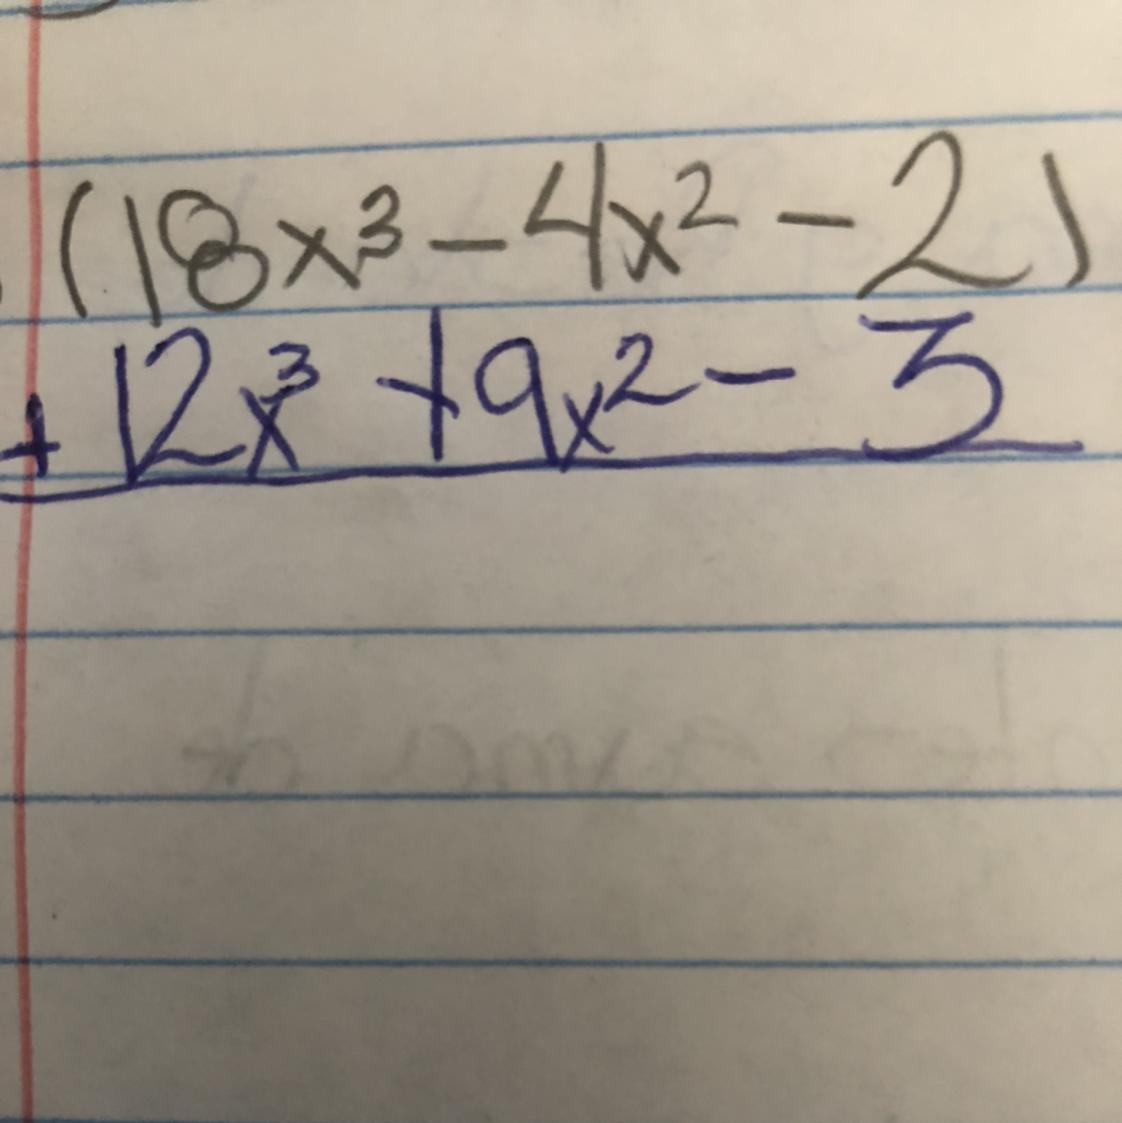 (18x³ - 4x² - 2)
+ 12x³ + 9x² - 3